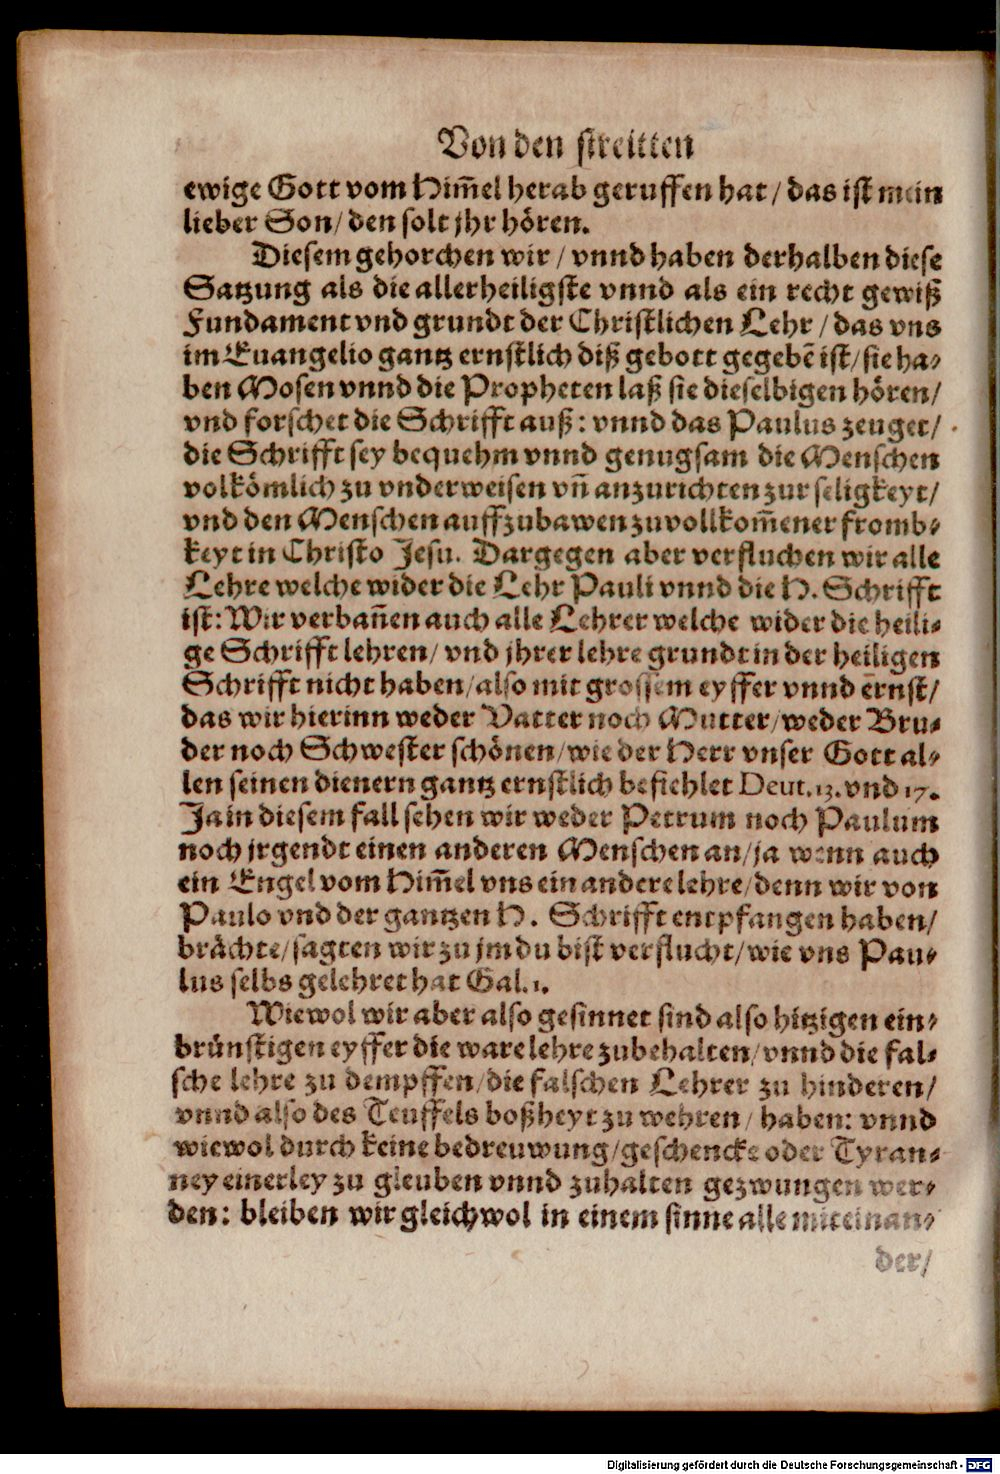 Von den streitten
ewige Gott vom Him̃el herab geruffen hat / das ist mein
lieber Son / den solt jhr hören.
Diesem gehorchen wir / vnnd haben derhalben diese
Satzung als die allerheiligste vnnd als ein recht gewiß
Fundament vnd grundt der Christlichen Lehr / das vns
im Euangelio gantz ernstlich diß gebott gegebẽ ist / sie ha⸗
ben Mosen vnnd die Propheten laß sie dieselbigen hören /
vnd forschet die Schrifft auß : vnnd das Paulus zeuget /
die Schrifft sey bequehm vnnd genugsam die Menschen
volkömlich zu vnderweisen vñ anzurichten zur seligkeyt /
vnd den Menschen auffzubawen zu vollkom̃ener fromb⸗
keyt in Christo Jesu. Dargegen aber verfluchen wir alle
Lehre welche wider die Lehr Pauli vnnd die H. Schrifft
ist : Wir verbañen auch alle Lehrer welche wider die heili⸗
ge Schrifft lehren / vnd jhrer lehre grundt in der heiligen
Schrifft nicht haben / also mit grossem eyffer vnnd ernst /
das wir hierinn weder Vatter noch Mutter / weder Bru⸗
der noch Schwester schönen / wie der Herr vnser Gott al⸗
len seinen dienern gantz ernstlich befiehlet Deut. 13. vnd 17.
Ja in diesem fall sehen wir weder Petrum noch Paulum
noch jrgendt einen anderen Menschen an / ja wenn auch
ein Engel vom Him̃el vns ein andere lehre / denn wir von
Paulo vnd der gantzen H. Schrifft entpfangen haben /
brächte / sagten wir zu jm du bist verflucht / wie vns Pau⸗
lus selbs gelehret hat Gal. 1.
Wiewol wir aber also gesinnet sind also hitzigen ein⸗
brünstigen eyffer die ware lehre zubehalten / vnnd die fal⸗
sche lehre zu dempffen / die falschen Lehrer zu hinderen /
vnnd also des Teuffels boßheyt zu wehren / haben : vnnd
wiewol durch keine bedreuwung / geschencke oder Tyran⸗
ney einerley zu gleuben vnnd zuhalten gezwungen wer⸗
den : bleiben wir gleichwol in einem sinne alle miteinan⸗
der /
Digitalisierung gefördert durch die Deutsche Forschungsgemeinschaft - DFG